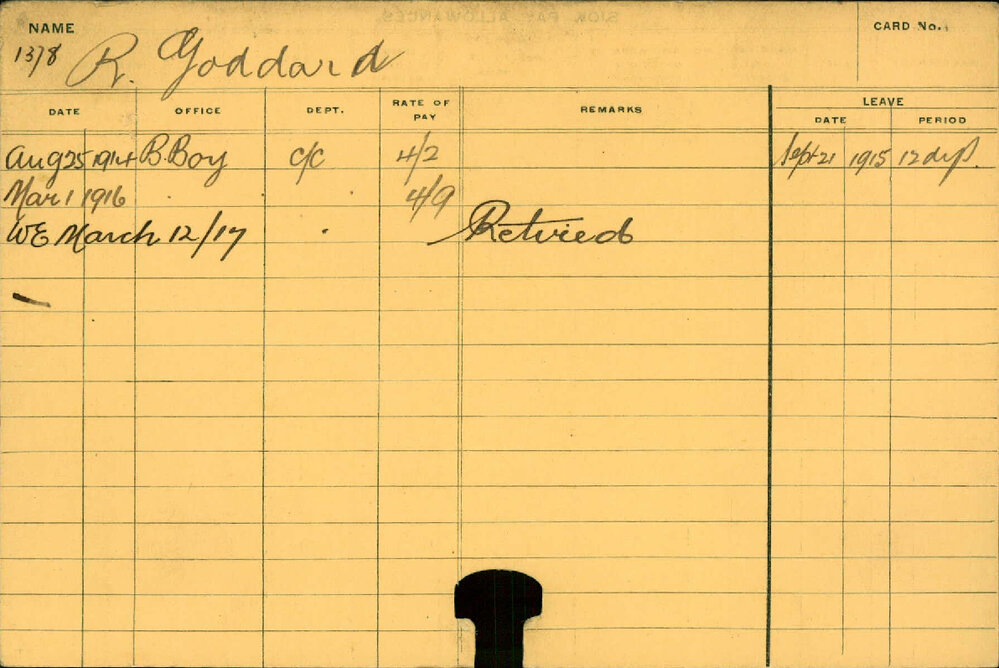 SICK PAY ALLOWANCES.
NAME CARD No.
1378 R. Goddard
DATE OFFICE DEPT. RATE OF PAY REMARKS LEAVE
DATE PERIOD
Aug 25 1914 B. Boy C/C 4/2 Sept 21 1915 12 dys.
Mar 1 1916 4/9
WE March 12/17 Retired